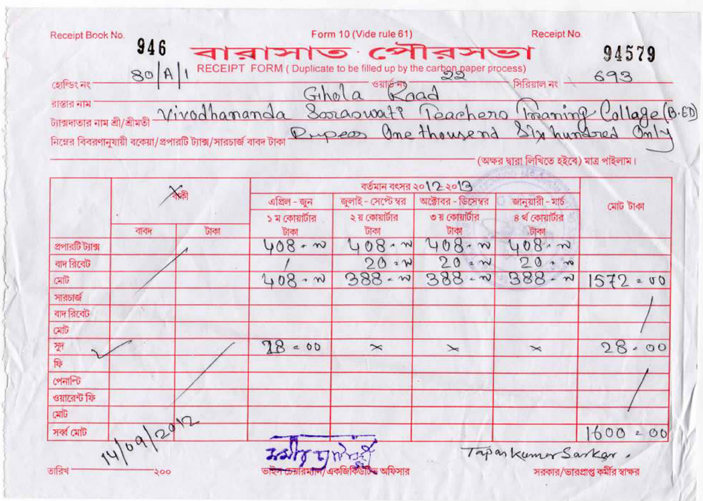 Receipt Book No. 946 Form 10 (Vide rule 61) Receipt No. 94579
বারাসাত পৌরসভা
RECEIPT FORM ( Duplicate to be filled up by the carbon paper process)
হোল্ডিং নং 80/A/1 ওয়ার্ড নং 22 সিরিয়াল নং 693
রাস্তার নাম Ghola Road
ট্যাক্সদাতার নাম শ্রী/শ্রীমতী Vivodhananda Saraswati Teachers Training Collage (B.ED)
নিম্নের বিবরণানুযায়ী বকেয়া/প্রপারটি ট্যাক্স/সারচার্জ বাবদ টাকা Rupees One thousend Six hundred Only
(অক্ষর দ্বারা লিখিতে হইবে) মাত্র পাইলাম।
বাকী বর্তমান বৎসর ২০12-২০13 মোট টাকা
এপ্রিল - জুন জুলাই - সেপ্টেম্বর অক্টোবর - ডিসেম্বর জানুয়ারী - মার্চ
১ ম কোয়ার্টার ২ য় কোয়ার্টার ৩ য় কোয়ার্টার ৪ র্থ কোয়ার্টার
বাবদ টাকা টাকা টাকা টাকা টাকা
প্রপারটি ট্যাক্স 408 408 408 408
বাদ রিবেট 20 20 20
মোট 408 388 388 388 1572 = 00
সারচার্জ
বাদ রিবেট
মোট
সুদ 28 = 00 × × × 28 - 00
ফি
পেনাল্টি
ওয়ারেন্ট ফি
মোট
সর্ব্ব মোট 1600 = 00
14/09/2012 Tapas Kumar Sarkar.
তারিখ ২০০ ভাইস চেয়ারম্যান/একজিকিউটিভ অফিসার সরকার/ভারপ্রাপ্ত কর্মীর স্বাক্ষর